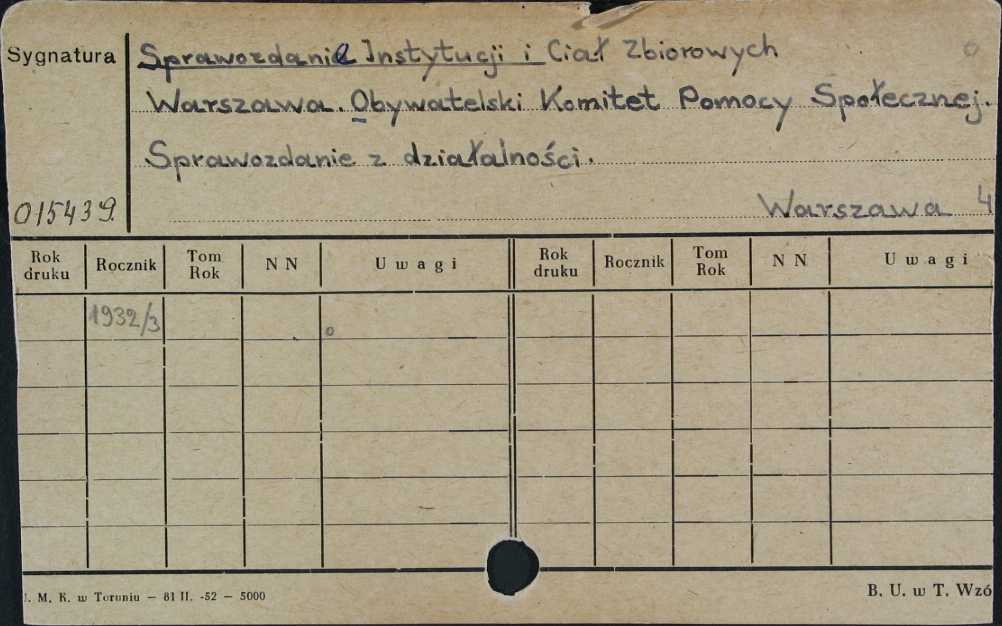 Sygnatura
Sprawozdanie Instytucji i Ciał Zbiorowych
Warszawa. Obywatelski Komitet Pomocy Społecznej.
Sprawozdanie z działalności.
015439.
Warszawa 4
Rok druku Rocznik Tom Rok N N Uwagi Rok druku Rocznik Tom Rok N N Uwagi
1932/3 o
. M. K. w Toruniu — 81 II. -52 — 5000
B. U. w T. Wzó